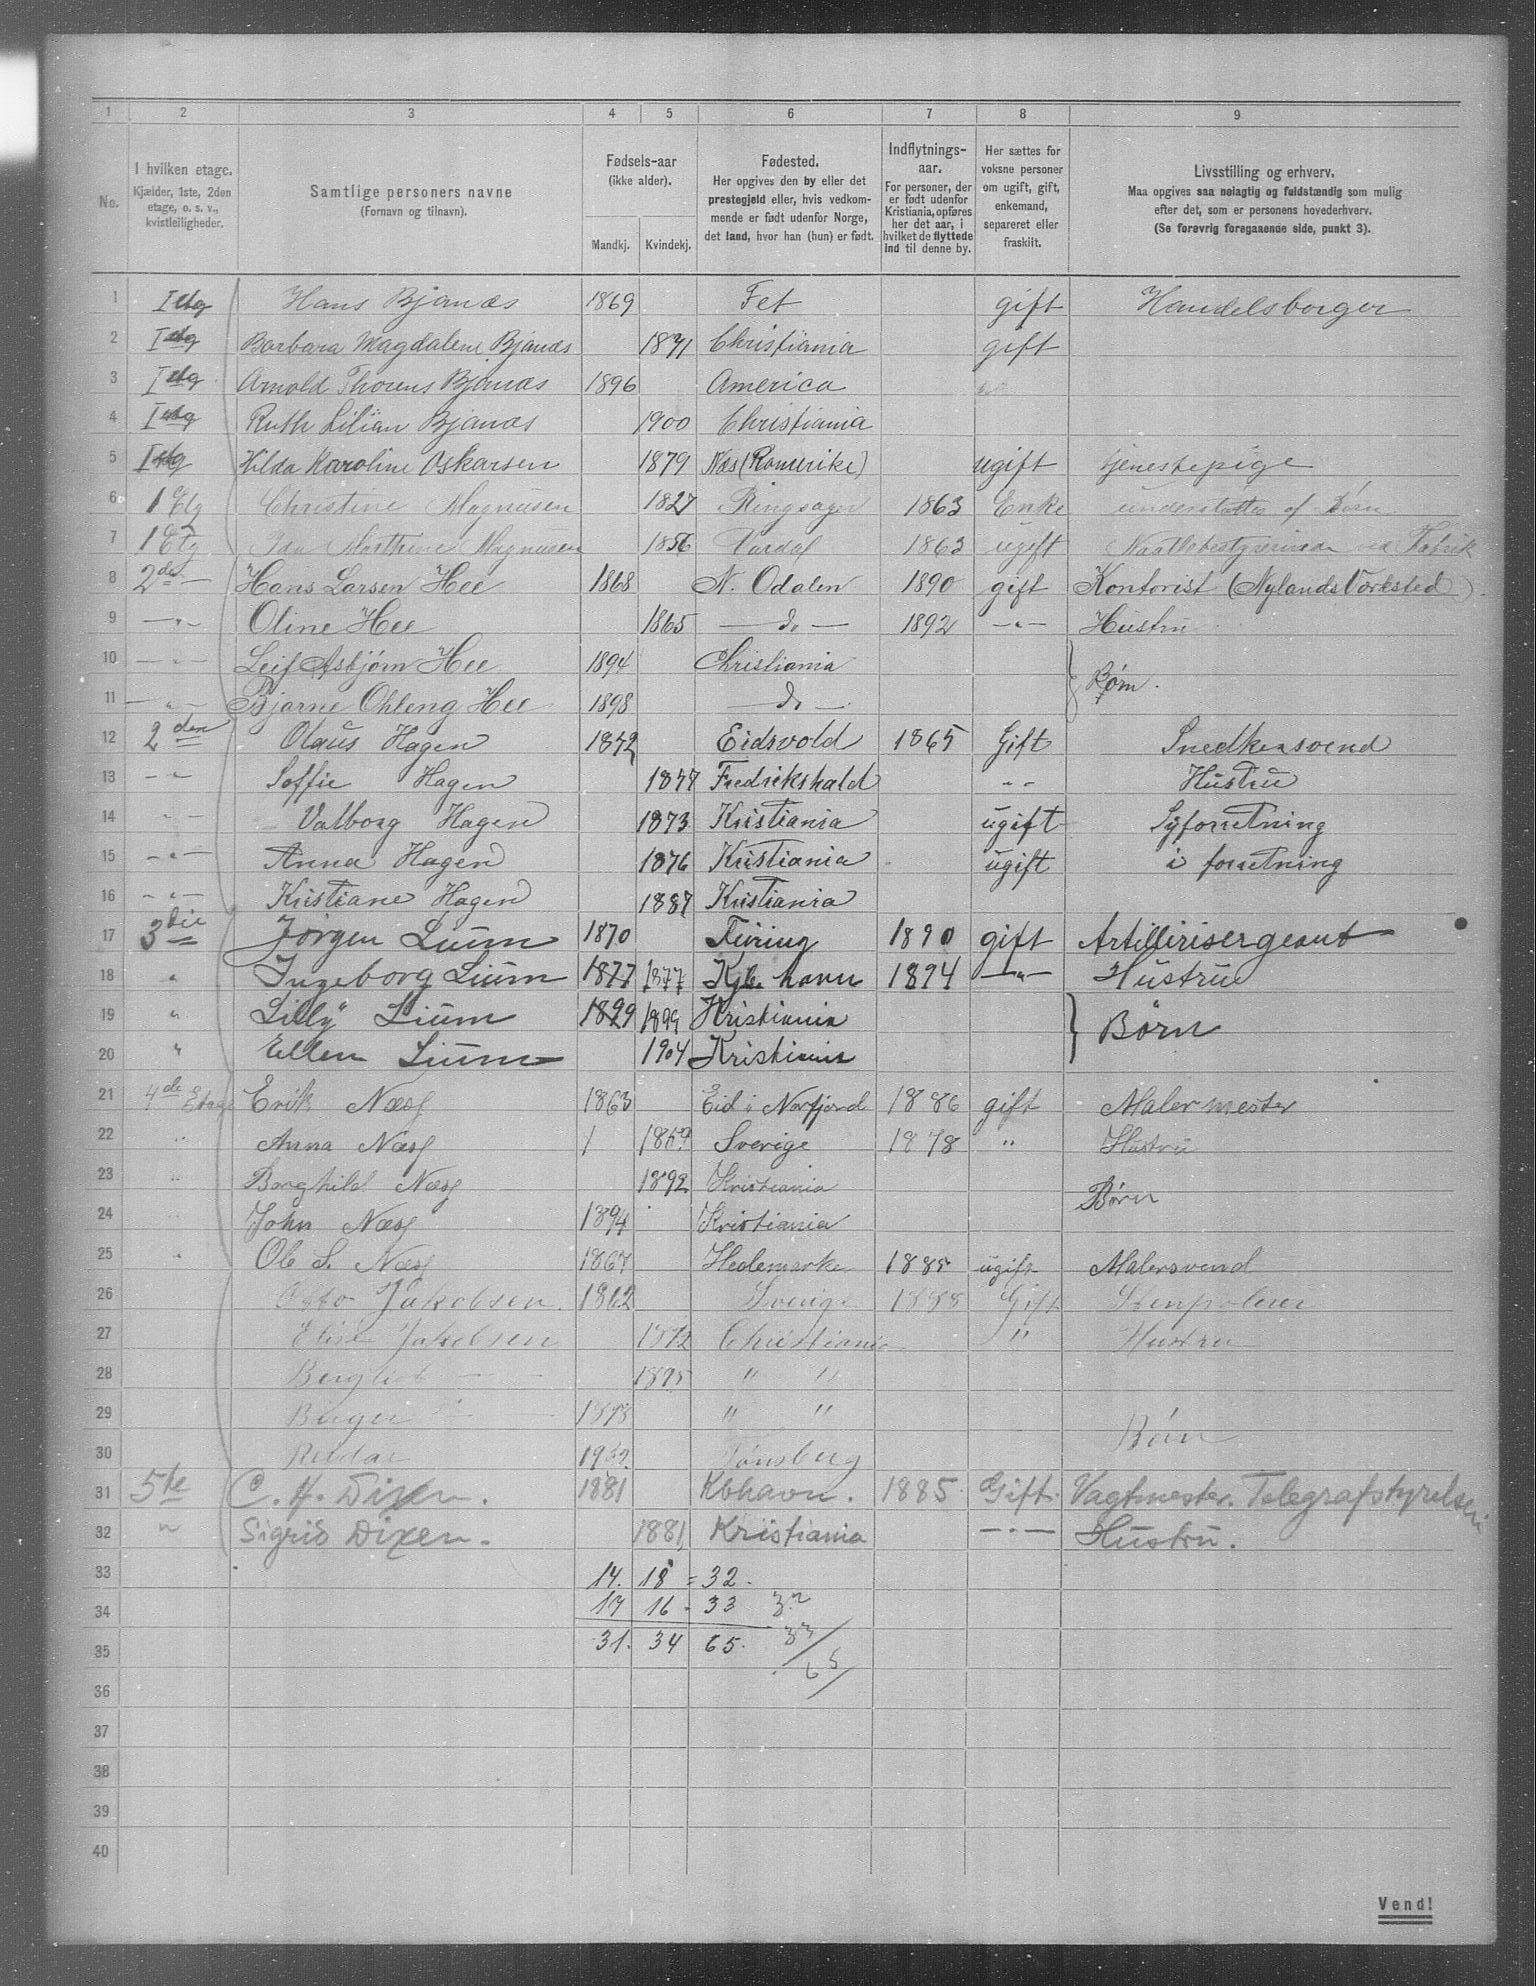 1 2 3 4 5 6 7 8 9
No.
I hvilken etage.
Kjælder, 1ste, 2den
etage, o. s. v.,
kvistleiligheder.
Samtlige personers navne
(Fornavn og tilnavn).
Fødsels-aar
(ikke alder).
Mandkj. Kvindekj.
Fødested.
Her opgives den by eller det
prestegjeld eller, hvis vedkom-
mende er født udenfor Norge,
det land, hvor han (hun) er født.
Indflytnings-
aar.
For personer, der
er født udenfor
Kristiania, opføres
her det aar, i
hvilket de flyttede
ind til denne by.
Her sættes for
voksne personer
om ugift, gift,
enkemand,
separeret eller
fraskilt.
Livsstilling og erhverv.
Maa opgives saa nøiagtig og fuldstændig som mulig
efter det, som er personens hovederhverv.
(Se forøvrig foregaaende side, punkt 3).
1 I etg Hans Bjanæs 1869 Fet gift Handelsborger
2 I etg Barbara Magdalene Bjanæs 1871 Christiania gift
3 I etg Arnold Thorens Bjanæs 1896 America
4 I etg Ruth Lilian Bjanæs 1900 Christiania
5 I etg Hilda Karoline Oskarsen 1879 Næs (Romerike) ugift tjenestepige
6 1 Etg Christine Magnusen 1827 Ringsager 1863 Enke understøttes af Børn
7 1 Etg Ida Marthine Magnusen 1856 Vardal 1863 ugift Fabrik
8 2den Hans Larsen Hee 1868 N. Odalen 1890 gift Kontorist (Nylands Værksted)
9 — " — Oline Hee 1865 — do — 1892 — " — Hustru
10 — " — Leif Asbjørn Hee 1894 Christiania
11 — " — Bjarne Ohleng Hee 1898 — do — Børn.
12 2den Olaus Hagen 1842 Eidsvold 1865 Gift Snedkersvend
13 — " — Soffie Hagen 1847 Fredrikshald " Hustru
14 — " — Valborg Hagen 1873 Kristiania ugift Syforretning
15 — " — Anna Hagen 1876 Kristiania ugift i forretning
16 — " — Kristiane Hagen 1887 Kristiania
17 3die Jørgen Lium 1870 Furing 1890 gift Artillirisergeant
18 " Ingeborg Lium 1877 1877 Kjb.havn 1894 — " — Hustru
19 " Lilly Lium 1899 1899 Kristiania
20 " Ellen Lium 1904 Kristiania Børn
21 4de Etage Erik Næss 1863 Eid i Norfjord 1886 gift Malermester
22 " Anna Næss 1859 Sverige 1878 " Hustru
23 " Borghild Næss 1892 Kristiania
24 John Næss 1894 Kristiania Børn
25 " Ole S. Næss 1867 Hedemarke 1885 ugift Malersvend
26 Otto Jakobsen 1862 Sverige 1888 Gift Stenpolerer
27 Elise Jakobsen 1872 Christiania " Hustru
28 Bergliot — 1895 " "
29 Birger — 1898 " "
30 Reidar Tønsberg Børn
31 5te C. H. Dixen. 1881 Kbhavn. 1885 Gift. Vagtmester. Telegrafstyrelsen
32 " Sigrid Dixen. 1881 Kristiania — " — Hustru.
33 14. 18 = 32.
34 17 16 - 33 32
35 31. 34 65. 33
65
36
37
38
39
40
Vend!